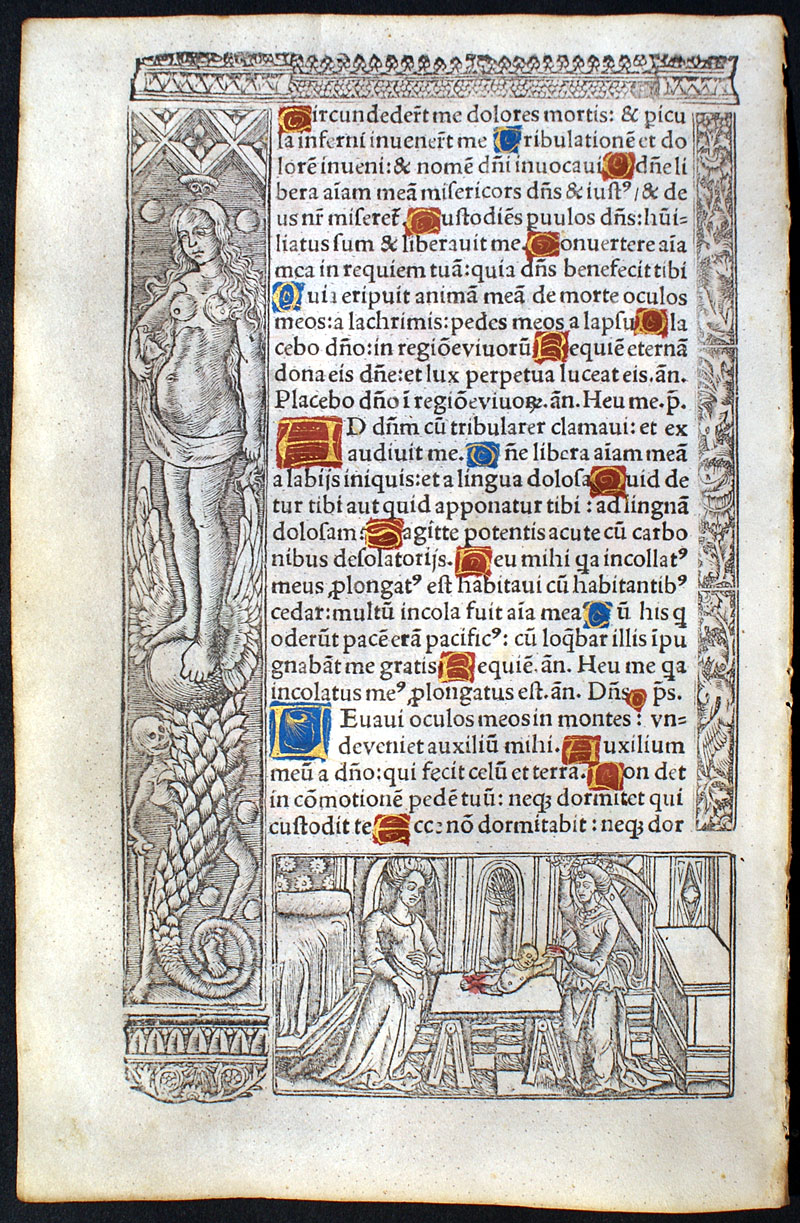 Circundederūt me dolores mortis: & picu
la inferni inuenerūt me Tribulationē et do
lorē inueni: & nomē dñi inuocaui O dñe li
bera aīam meā misericors dñs & iustꝰ / & de
us nr̄ miseret̄. Custodiēs puulos dñs: hūi=
liatus sum & liberauit me. Conuertere aīa
mea in requiem tuā: quia dñs benefecit tibi
Quia eripuit animā meā de morte oculos
meos: a lachrimis: pedes meos a lapsu Pla
cebo dño: in regiōe viuorū Requiē eternā
dona eis dñe: et lux perpetua luceat eis. añ.
Placebo dño ī regiōe viuoꝝ. añ. Heu me. p̄.
AD dñm cū tribularer clamaui: et ex
audiuit me. Dñe libera aīam meā
a labijs iniquis: et a lingua dolosa Quid de
tur tibi aut quid apponatur tibi : ad lingnā
dolosam: Sagitte potentis acute cū carbo
nibus desolatorijs. Heu mihi qa incolatꝰ
meus ꝓlongatꝰ est habitaui cū habitantibꝰ
cedar: multū incola fuit aīa mea Cū his q
oderūt pacē erā pacificꝰ: cū loq̄bar illis īpu
gnabāt me gratis Requiē. añ. Heu me qa
incolatus meꝰ ꝓlongatus est. añ. Dñs p̄s.
LEuaui oculos meos in montes : vn=
de veniet auxiliū mihi. Auxilium
meū a dño: qui fecit celū et terra. Non det
in cōmotionē pedē tuū: neqꝫ dormitet qui
custodit te Ecce nō dormitabit : neqꝫ dor